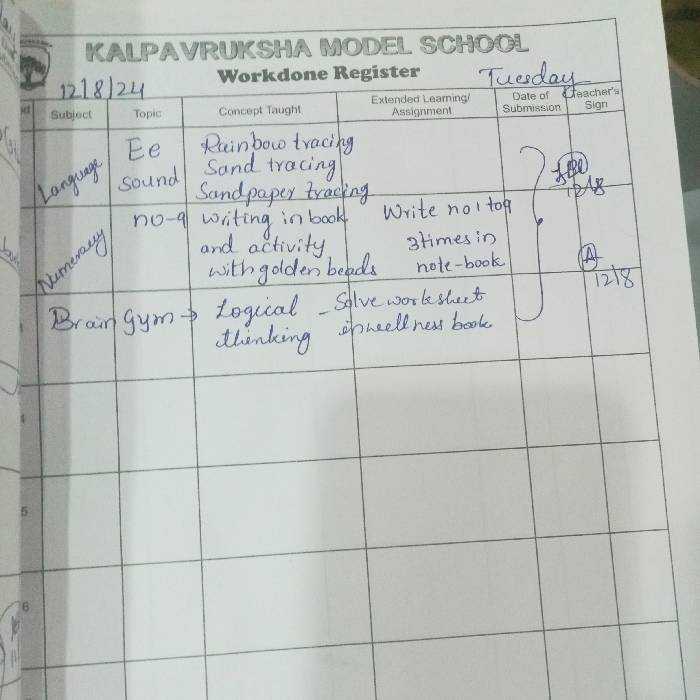 KALPAVRUKSHA MODEL SCHOOL
Workdone Register
12/8/24
Tuesday
Subject
Topic
Concept Taught
Extended Learning/
Assignment
Date of
Submission
Teacher's
Sign
Language
Ee
sound
Rainbow tracing
Sand tracing
Sandpaper tracing
12/8
Numeracy
no-9
writing in book
and activity
with golden beads
Write no 1 to 9
3 times in
note-book
A
12/8
Brain gym →
Logical
thinking
- Solve worksheet
in wellness book
5
6